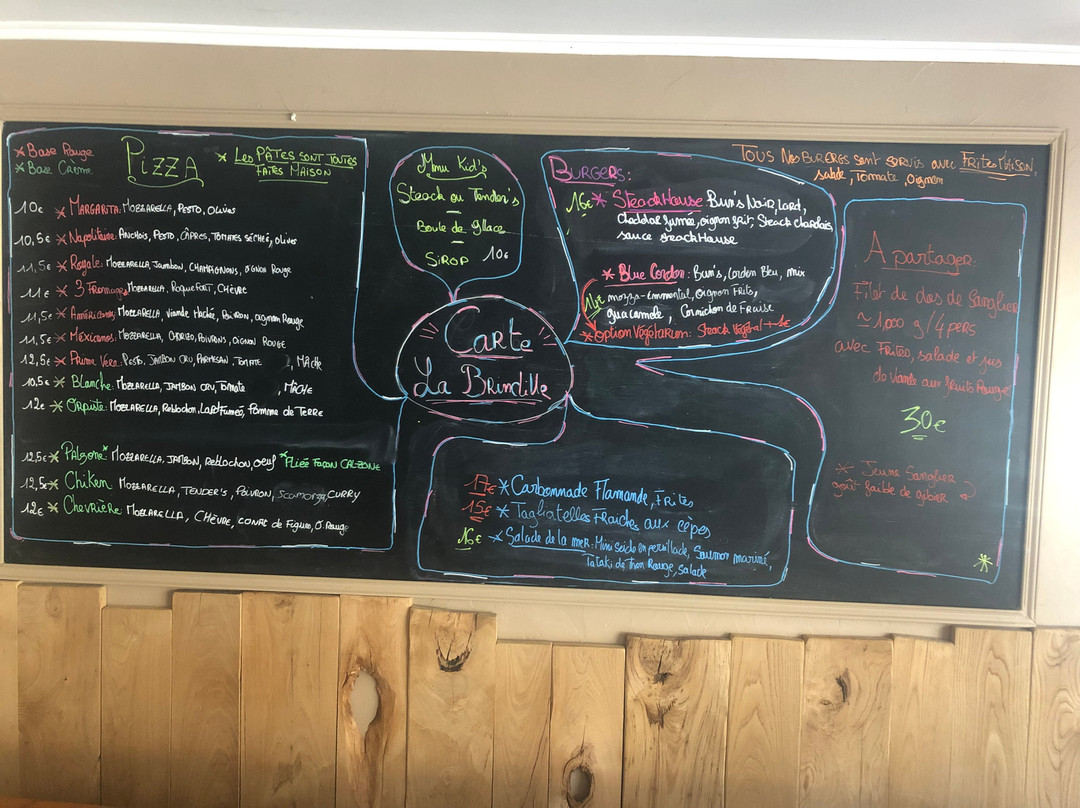 * Base Rouge
* Base Crème
PIZZA
* LES PÂTES SONT TOUTES
FAITES MAISON
10€ * MARGARITA: MOZZARELLA, PESTO, OLIVES
10,5€ * Napolitaine: ANCHOIS, PESTO, CÂPRES, TOMATES SÉCHÉE, OLIVES
11,5€ * Royale: MOZZARELLA, JAMBON, CHAMPIGNONS, OIGNON ROUGE
11€ * 3 Fromages: MOZZARELLA, ROQUEFORT, CHÈVRE
11,5€ * Américains: MOZZARELLA, Viande Hachée, POIVRON, oignon Rouge
11,5€ * Mexicanos: MOZZARELLA, CHORIZO, POIVRONS, OIGNON ROUGE
12,5€ * Prima Vera: PESTO, JAMBON CRU, PARMESAN, TOMATE, MÂCHE
10,5€ * Blanche: MOZZARELLA, JAMBON CRU, Tomate, MÂCHE
12€ * MOZZARELLA, Reblochon, Lard Fumé, Pomme de TERRE
12,5€ * MOZZARELLA, JAMBON, REBLOCHON, OEUF *PLIÉE FAÇON CALZONE
12,5€ * Chiken MOZZARELLA, TENDER'S, POIVRON, SCAMORZA, CURRY
12€ * Chevrière: MOZZARELLA, CHÈVRE, CONFIT de Figue, O. Rouge
Mnu Kid's
Steack ou Tender's
Boule de glace
SIROP 10€
CARTE
La Brindille
BURGERS:
16€ * STEACKHOUSE Bun's Noir, Lard,
Cheddar fumée, oignon frit, Steack charolais,
sauce steackHause
* Blue Cordon: Bun's, Cordon Bleu, mix
mozza-emmental, oignon Frits,
guacamole, Cornichon de Fraise
* Option Végétarien: Steack Végétal +1€
TOUS NOS BURGERS sont servis avec FRITES MAISON,
salade, Tomate, Oignon
A partager:
Filet de dos de Sanglier
≃ 1,000 g / 4 pers
avec Frites, salade et jus
de viande aux fruits Rouges
30€
* Jeune Sanglier
goût faible de gibier
17€ * Carbonnade Flamande, FRITES
15€ * Tagliatelles Fraîches aux cèpes
16€ * Salade de la mer: Mini seiche en persillade, Saumon mariné,
Tataki de Thon Rouge, salade